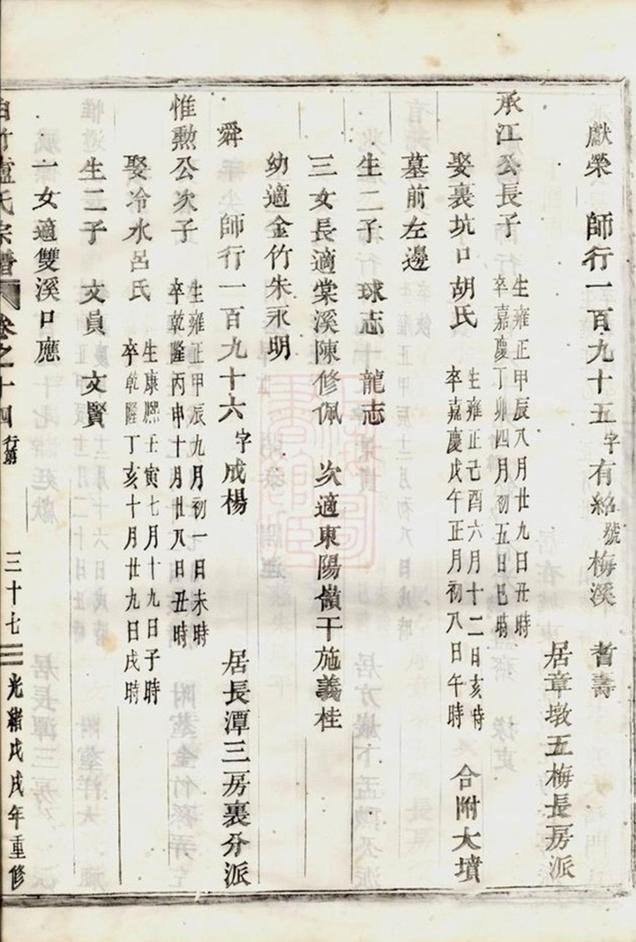 獻榮　師行一百九十五字有紹號梅溪　耆壽
承江公長子　生雍正甲辰八月廿九日丑時　卒嘉慶丁卯四月初五日巳時　居章墩五梅長房派
娶裏坑口胡氏　生雍正己酉六月十二日亥時　卒嘉慶戊午正月初八日午時　合附大墳
墓前左邊
生二子　球志　龍志
三女長適棠溪陳修佩　次適東陽嶺干施義桂
幼適金竹朱永明
舜　師行一百九十六字成楊
惟勲公次子　生雍正甲辰九月初一日未時　卒乾隆丙申十月廿八日丑時　居長潭三房裏分派
娶冷水呂氏　生康熙壬寅七月十九日子時　卒乾隆丁亥十月廿九日戌時
生二子　文員　文賢
一女適雙溪口應
竹盧氏宗譜　卷之十四　行第　三十七　光緒戊戌年重修